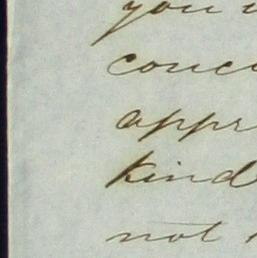 you
conc
appr
kind
not